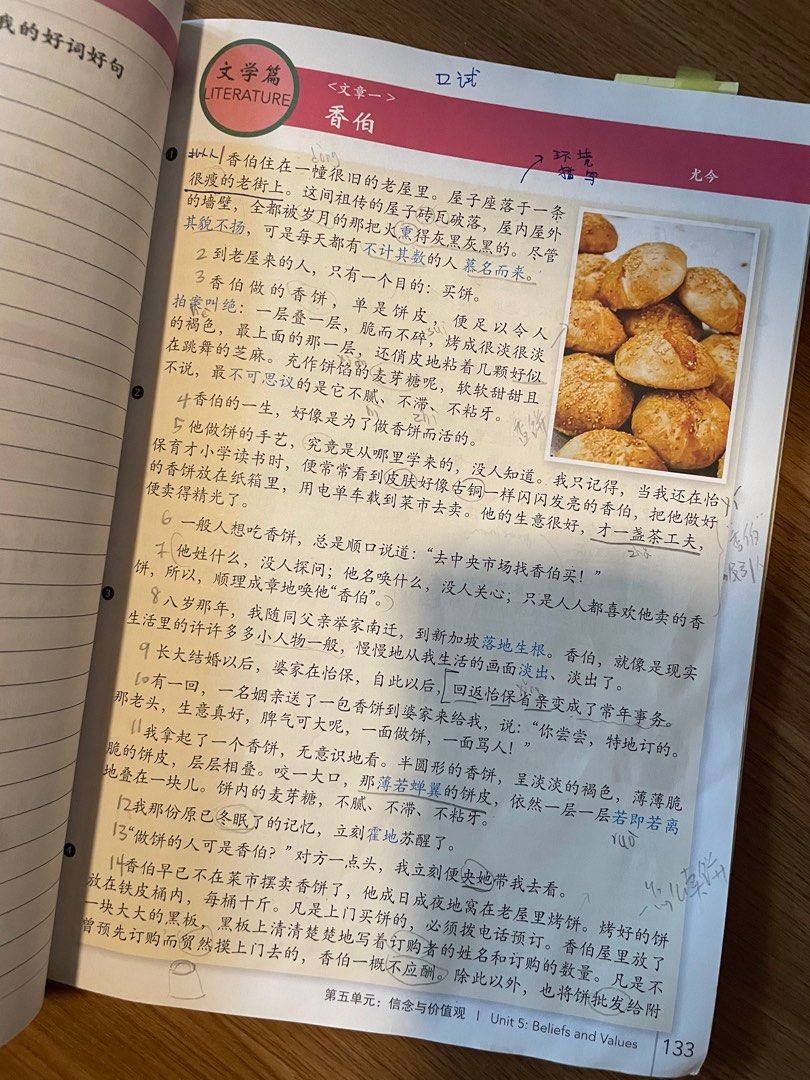 我的好词好句
口试
文学篇
LITERATURE
<文章一>
香伯
环境
描写
尤今
1
香伯住在一幢很旧的老屋里。屋子座落于一条
很瘦的老街上。这间祖传的屋子砖瓦破落，屋内屋外
的墙壁，全都被岁月的那把火熏得灰黑灰黑的。尽管
其貌不扬，可是每天都有不计其数的人慕名而来。
2 到老屋来的人，只有一个目的：买饼。
3 香伯做的香饼，单是饼皮，便足以令人
拍案叫绝：一层叠一层，脆而不碎，烤成很淡很淡
的褐色，最上面的那一层，还俏皮地粘着几颗好似
在跳舞的芝麻。充作饼馅的麦芽糖呢，软软甜甜且
不说，最不可思议的是它不腻、不滞、不粘牙。
2
4 香伯的一生，好像是为了做香饼而活的。
5 他做饼的手艺，究竟是从哪里学来的，没人知道。我只记得，当我还在怡
保育才小学读书时，便常常看到皮肤好像古铜一样闪闪发亮的香伯，把他做好
的香饼放在纸箱里，用电单车载到菜市去卖。他的生意很好，才一盏茶工夫，
便卖得精光了。
6 一般人想吃香饼，总是顺口说道：“去中央市场找香伯买！”
7 他姓什么，没人探问；他名唤什么，没人关心；只是人人都喜欢他卖的香
饼，所以，顺理成章地唤他“香伯”。
3
8 八岁那年，我随同父亲举家南迁，到新加坡落地生根。香伯，就像是现实
生活里的许许多多小人物一般，慢慢地从我生活的画面淡出、淡出了。
9 长大结婚以后，婆家在怡保，自此以后，回返怡保省亲变成了常年事务。
10 有一回，一名姻亲送了一包香饼到婆家来给我，说：“你尝尝，特地订的。
那老头，生意真好，脾气可大呢，一面做饼，一面骂人！”
11 我拿起了一个香饼，无意识地看。半圆形的香饼，呈淡淡的褐色，薄薄脆
脆的饼皮，层层相叠。咬一大口，那薄若蝉翼的饼皮，依然一层一层若即若离
地叠在一块儿。饼内的麦芽糖，不腻、不滞、不粘牙。
ruò
12 我那份原已冬眠了的记忆，立刻霍地苏醒了。
4
13 “做饼的人可是香伯？”对方一点头，我立刻便央她带我去看。
14 香伯早已不在菜市摆卖香饼了，他成日成夜地窝在老屋里烤饼。烤好的饼
放在铁皮桶内，每桶十斤。凡是上门买饼的，必须拨电话预订。香伯屋里放了
一块大大的黑板，黑板上清清楚楚地写着订购者的姓名和订购的数量。凡是不
曾预先订购而贸然摸上门去的，香伯一概不应酬。除此以外，也将饼批发给附
香伯
吸引人
第五单元：信念与价值观 | Unit 5: Beliefs and Values
133